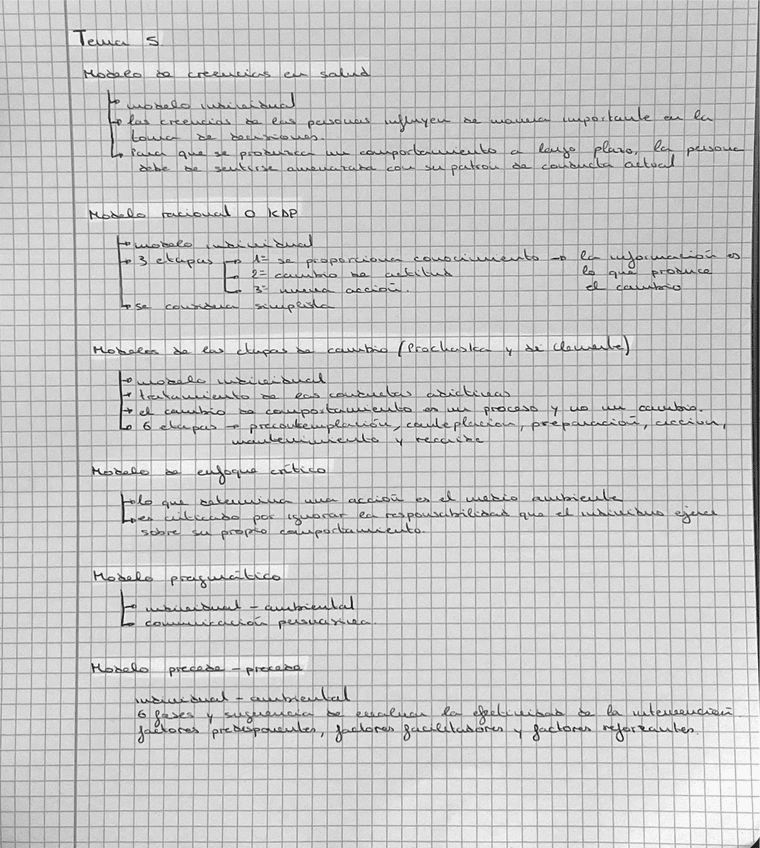 Tema 5
Modelo de creencias en salud
modelo individual
las creencias de las personas influyen de manera importante en la
toma de decisiones.
Para que se produzca un comportamiento a largo plazo, la persona
debe de sentirse amenazada con su patron de conducta actual
Modelo racional o KDP
modelo individual
3 etapas → 1= se proporciona conocimiento → la información es
2= cambio de actitud lo que produce
3= nueva acción. el cambio
se considera simplista
Modelos de las etapas de cambio (Prochaska y di Clemente)
modelo individual
tratamiento de las conductas adictivas
el cambio de comportamiento es un proceso y no un cambio.
6 etapas → precontemplación, conteplacion, preparación, acción,
mantenimiento y recaida
Modelo de enfoque crítico
lo que determina una acción es el medio ambiente
es criticado por ignorar la responsabilidad que el individuo ejerce
sobre su propio comportamiento.
Modelo pragmático
individual - ambiental
comunicación persuasiva.
Modelo precede - procede
individual - ambiental
6 fases y sugerencia de evaluar la efectividad de la intervención
factores predisponentes, factores facilitadores y factores reforzantes.